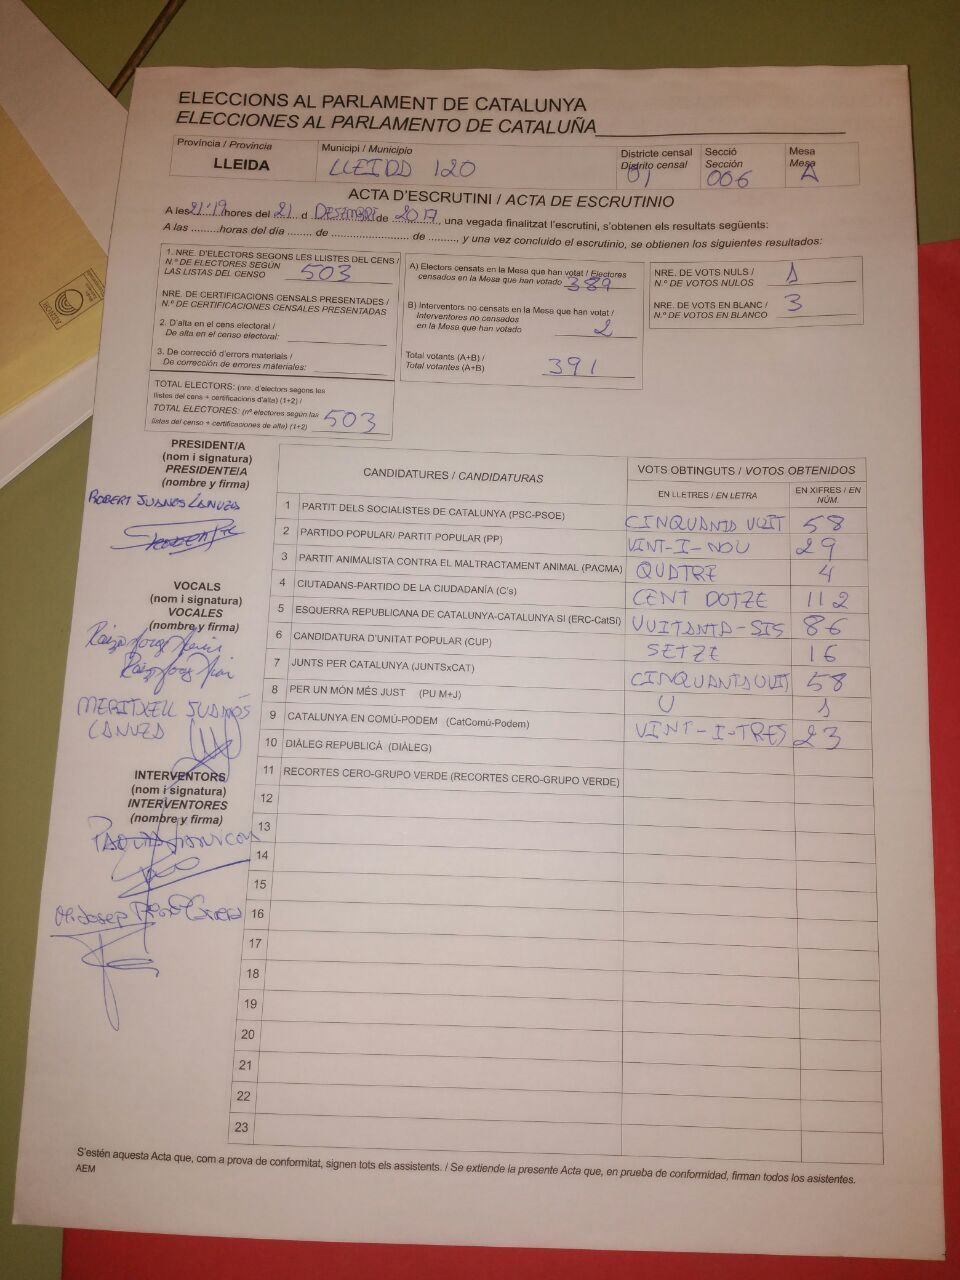 ELECCIONS AL PARLAMENT DE CATALUNYA
ELECCIONES AL PARLAMENTO DE CATALUÑA
Província / Provincia
LLEIDA
Municipi / Municipio
LLEIDA 120
Districte censal
Distrito censal
01
Secció
Sección
006
Mesa
Mesa
A
ACTA D'ESCRUTINI / ACTA DE ESCRUTINIO
A les 21'19 hores del 21 d DESEMBRE de 2017, una vegada finalitzat l'escrutini, s'obtenen els resultats següents:
A las .........horas del día ........ de .......................... de ........., y una vez concluido el escrutinio, se obtienen los siguientes resultados:
1. NRE. D'ELECTORS SEGONS LES LLISTES DEL CENS /
N.º DE ELECTORES SEGÚN
LAS LISTAS DEL CENSO
503
NRE. DE CERTIFICACIONS CENSALS PRESENTADES /
N.º DE CERTIFICACIONES CENSALES PRESENTADAS
2. D'alta en el cens electoral /
De alta en el censo electoral:
3. De correcció d'errors materials /
De corrección de errores materiales:
TOTAL ELECTORS: (nre. d'electors segons les
llistes del cens + certificacions d'alta) (1+2) /
TOTAL ELECTORES: (nº electores según las
listas del censo + certificaciones de alta) (1+2)
503
A) Electors censats en la Mesa que han votat / Electores
censados en la Mesa que han votado
389
B) Interventors no censats en la Mesa que han votat /
Interventores no censados
en la Mesa que han votado
2
Total votants (A+B) /
Total votantes (A+B)
391
NRE. DE VOTS NULS /
N.º DE VOTOS NULOS
1
NRE. DE VOTS EN BLANC /
N.º DE VOTOS EN BLANCO
3
PRESIDENT/A
(nom i signatura)
PRESIDENTE/A
(nombre y firma)
ROBERT JUANOS LANUZA
VOCALS
(nom i signatura)
VOCALES
(nombre y firma)
MERITXELL JUANÓS
LANUZA
INTERVENTORS
(nom i signatura)
INTERVENTORES
(nombre y firma)
CANDIDATURES / CANDIDATURAS
VOTS OBTINGUTS / VOTOS OBTENIDOS
EN LLETRES / EN LETRA
EN XIFRES / EN NÚM.
1 PARTIT DELS SOCIALISTES DE CATALUNYA (PSC-PSOE) CINQUANTA VUIT 58
2 PARTIDO POPULAR/ PARTIT POPULAR (PP) VINT-I-NOU 29
3 PARTIT ANIMALISTA CONTRA EL MALTRACTAMENT ANIMAL (PACMA) QUATRE 4
4 CIUTADANS-PARTIDO DE LA CIUDADANÍA (C's) CENT DOTZE 112
5 ESQUERRA REPUBLICANA DE CATALUNYA-CATALUNYA SÍ (ERC-CatSí) VUITANTA-SIS 86
6 CANDIDATURA D'UNITAT POPULAR (CUP) SETZE 16
7 JUNTS PER CATALUNYA (JUNTSxCAT) CINQUANTA VUIT 58
8 PER UN MÓN MÉS JUST (PU M+J) U 1
9 CATALUNYA EN COMÚ-PODEM (CatComú-Podem) VINT-I-TRES 23
10 DIÀLEG REPUBLICÀ (DIÀLEG)
11 RECORTES CERO-GRUPO VERDE (RECORTES CERO-GRUPO VERDE)
12
13
14
15
16
17
18
19
20
21
22
23
S'estén aquesta Acta que, com a prova de conformitat, signen tots els assistents. / Se extiende la presente Acta que, en prueba de conformidad, firman todos los asistentes.
AEM